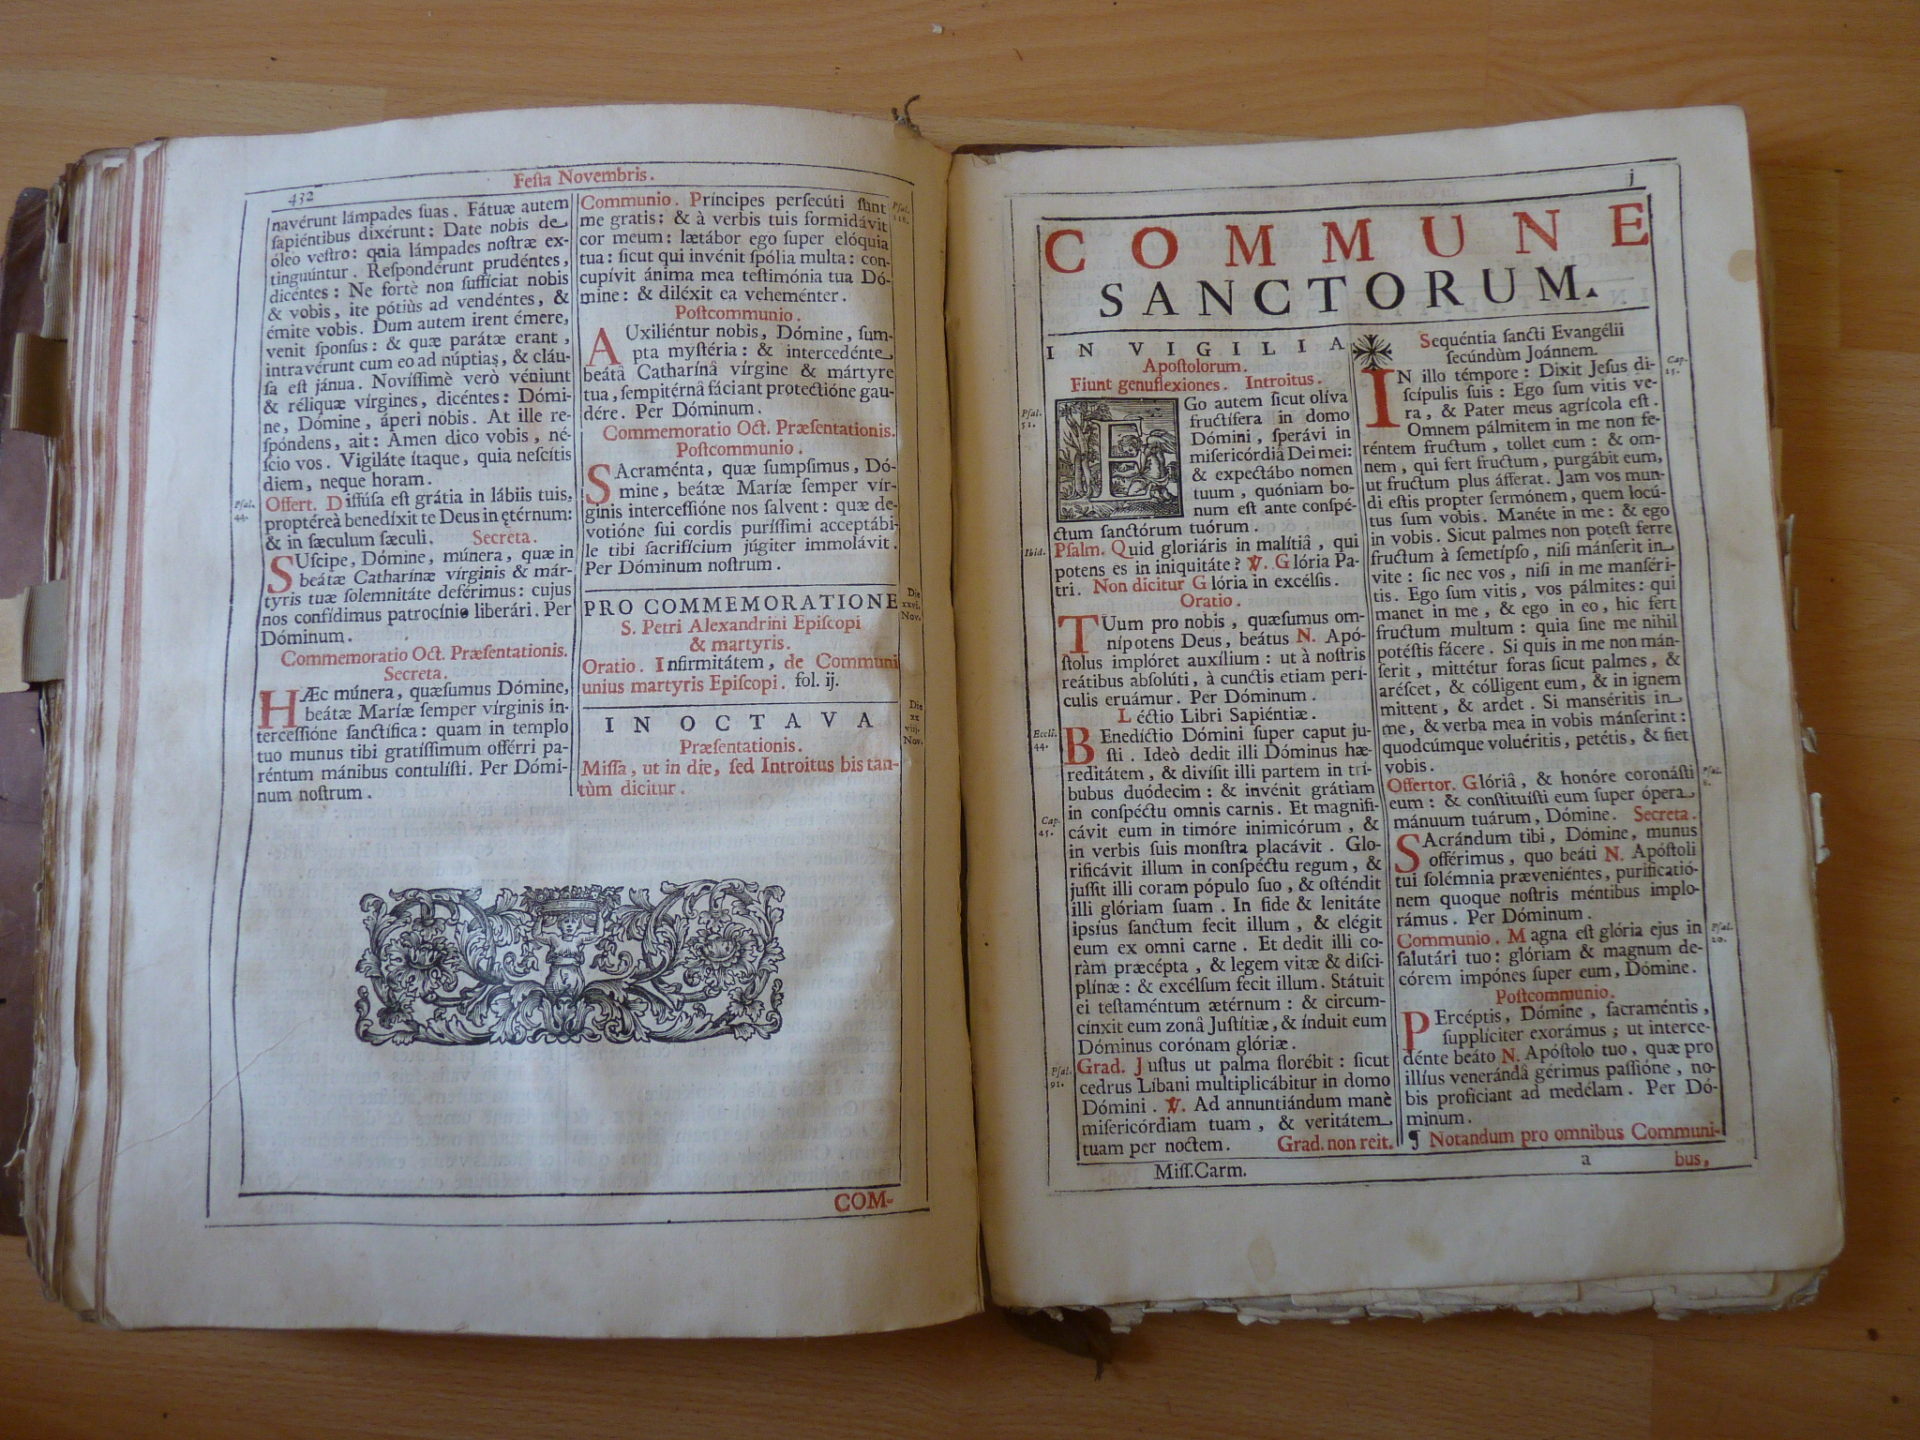 432
Festa Novembris.
navérunt lámpades suas. Fátuæ autem
sapiéntibus dixérunt: Date nobis de
óleo vestro: quia lámpades nostræ ex-
tinguúntur. Respondérunt prudéntes,
dicéntes: Ne fortè non sufficiat nobis
& vobis, ite pótiùs ad vendéntes, &
émite vobis. Dum autem irent émere,
venit sponsus: & quæ parátæ erant,
intravérunt cum eo ad núptias, & cláu-
sa est jánua. Novíssimè verò véniunt
& réliquæ vírgines, dicéntes: Dómi-
ne, Dómine, áperi nobis. At ille re-
spóndens, ait: Amen dico vobis, né-
scio vos. Vigiláte ítaque, quia nescítis
diem, neque horam.
Psal. 44.
Offert. Diffúsa est grátia in lábiis tuis,
proptéreà benedíxit te Deus in ętérnum:
& in sæculum sæculi. Secreta.
SUscipe, Dómine, múnera, quæ in
beátæ Catharínæ vírginis & már-
tyris tuæ solemnitáte deférimus: cujus
nos confídimus patrocínio liberári. Per
Dóminum.
Commemoratio Oct. Præsentationis.
Secreta.
HÆc múnera, quæsumus Dómine,
beátæ Maríæ semper vírginis in-
tercessióne sanctífica: quam in templo
tuo munus tibi gratíssimum offérri pa-
réntum mánibus contulísti. Per Dómi-
num nostrum.
Communio. Príncipes persecúti sunt
me gratis: & à verbis tuis formidávit
cor meum: lætábor ego super elóquia
tua: sicut qui invénit spólia multa: con-
cupívit ánima mea testimónia tua Dó-
mine: & diléxit ea veheménter.
Psal. 118.
Postcommunio.
AUxiliéntur nobis, Dómine, sum-
pta mystéria: & intercedénte
beátâ Catharínâ vírgine & mártyre
tua, sempitérnâ fáciant protectióne gau-
dére. Per Dóminum.
Commemoratio Oct. Præsentationis.
Postcommunio.
SAcraménta, quæ sumpsimus, Dó-
mine, beátæ Maríæ semper vír-
ginis intercessióne nos salvent: quæ de-
votióne sui cordis puríssimi acceptábi-
le tibi sacrifícium júgiter immolávit.
Per Dóminum nostrum.
PRO COMMEMORATIONE
S. Petri Alexandrini Episcopi
& martyris.
Die xxvi. Nov.
Oratio. Infirmitátem, de Communi
unius martyris Episcopi. fol. ij.
IN OCTAVA
Præsentationis.
Die xx viij. Nov.
Missa, ut in die, sed Introitus bis tan-
tùm dicitur.
COM-
j
COMMUNE
SANCTORUM.
IN VIGILIA
Apostolorum.
Fiunt genuflexiones. Introitus.
Psal. 51.
EGo autem sicut olíva
fructífera in domo
Dómini, sperávi in
misericórdiâ Dei mei:
& expectábo nomen
tuum, quóniam bo-
num est ante conspé-
ctum sanctórum tuórum.
Ibid.
Psalm. Quid gloriáris in malítiâ, qui
potens es in iniquitáte? ℣. Glória Pa-
tri. Non dicitur Glória in excélsis.
Oratio.
TUum pro nobis, quæsumus om-
nípotens Deus, beátus N. Apó-
stolus implóret auxílium: ut à nostris
reátibus absolúti, à cunctis etiam perí-
culis eruámur. Per Dóminum.
Léctio Libri Sapiéntiæ.
Eccl. 44.
BEnedíctio Dómini super caput ju-
sti. Ideò dedit illi Dóminus hæ-
reditátem, & divísit illi partem in tri-
bubus duódecim: & invénit grátiam
in conspéctu omnis carnis. Et magnifi-
Cap. 45.
cávit eum in timóre inimicórum, &
in verbis suis monstra placávit. Glo-
rificávit illum in conspéctu regum, &
jussit illi coram pópulo suo, & osténdit
illi glóriam suam. In fide & lenitáte
ipsíus sanctum fecit illum, & elégit
eum ex omni carne. Et dedit illi co-
ràm præcépta, & legem vitæ & disci-
plínæ: & excélsum fecit illum. Státuit
ei testaméntum ætérnum: & circum-
cínxit eum zonâ Justítiæ, & índuit eum
Dóminus corónam glóriæ.
Psal. 91.
Grad. Justus ut palma florébit: sicut
cedrus Líbani multiplicábitur in domo
Dómini. ℣. Ad annuntiándum manè
misericórdiam tuam, & veritátem
tuam per noctem. Grad. non reit.
Miss. Carm.
Sequéntia sancti Evangélii
secúndùm Joánnem.
Cap. 15.
IN illo témpore: Dixit Jesus di-
scípulis suis: Ego sum vitis ve-
ra, & Pater meus agrícola est.
Omnem pálmitem in me non fe-
réntem fructum, tollet eum: & om-
nem, qui fert fructum, purgábit eum,
ut fructum plus áfferat. Jam vos mun-
di estis propter sermónem, quem locú-
tus sum vobis. Manéte in me: & ego
in vobis. Sicut palmes non potest ferre
fructum à semetípso, nisi mánserit in
vite: sic nec vos, nisi in me manséri-
tis. Ego sum vitis, vos pálmites: qui
manet in me, & ego in eo, hic fert
fructum multum: quia sine me nihil
potéstis fácere. Si quis in me non mán-
serit, mittétur foras sicut palmes, &
aréscet, & cólligent eum, & in ignem
mittent, & ardet. Si manséritis in
me, & verba mea in vobis mánserint:
quodcúmque voluéritis, petétis, & fiet
vobis.
Offertor. Glóriâ, & honóre coronásti
eum: & constituísti eum super ópera
mánuum tuárum, Dómine. Secreta.
SAcrándum tibi, Dómine, munus
offérimus, quo beáti N. Apóstoli
tui solémnia præveniéntes, purificatió-
nem quoque nostris méntibus implo-
rámus. Per Dóminum.
Psal. 20.
Communio. Magna est glória ejus in
salutári tuo: glóriam & magnum de-
córem impónes super eum, Dómine.
Postcommunio.
PErcéptis, Dómine, sacraméntis,
supplíciter exorámus; ut interce-
dénte beáto N. Apóstolo tuo, quæ pro
illíus venerándâ gérimus passióne, no-
bis profíciant ad medélam. Per Dó-
minum.
¶ Notandum pro omnibus Communi-
a
bus,